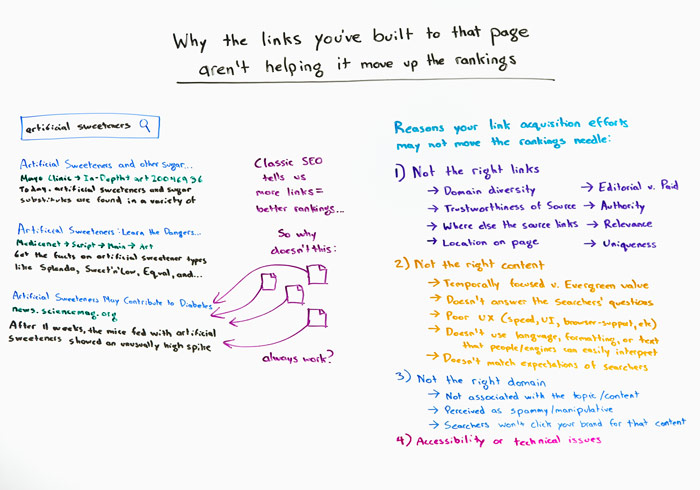 Why the links you've built to that page
aren't helping it move up the rankings
artificial sweeteners
Artificial Sweeteners and other sugar...
Mayo Clinic → In-Depth → art 20046936
Today, artificial sweeteners and sugar
substitutes are found in a variety of
Artificial Sweeteners: Learn the Dangers...
Medicinenet → Script → Main → Art
Get the facts on artificial sweetener types
like Splenda, Sweet'n'Low, Equal, and...
Artificial Sweeteners May Contribute to Diabetes
news.sciencemag.org
After 11 weeks, the mice fed with artificial
sweeteners showed an unusually high spike
Classic SEO
tells us
more links =
better rankings...
So why
doesn't this:
always work?
Reasons your link acquisition efforts
may not move the rankings needle:
1) Not the right links
→ Domain diversity
→ Trustworthiness of Source
→ Where else the source links
→ Location on page
→ Editorial v. Paid
→ Authority
→ Relevance
→ Uniqueness
2) Not the right content
→ Temporally focused v. Evergreen value
→ Doesn't answer the searchers' questions
→ Poor UX (speed, UI, browser-support, etc)
→ Doesn't use language, formatting, or text
that people/engines can easily interpret
→ Doesn't match expectations of searchers
3) Not the right domain
→ Not associated with the topic/content
→ Perceived as spammy/manipulative
→ Searchers won't click your brand for that content
4) Accessibility or technical issues